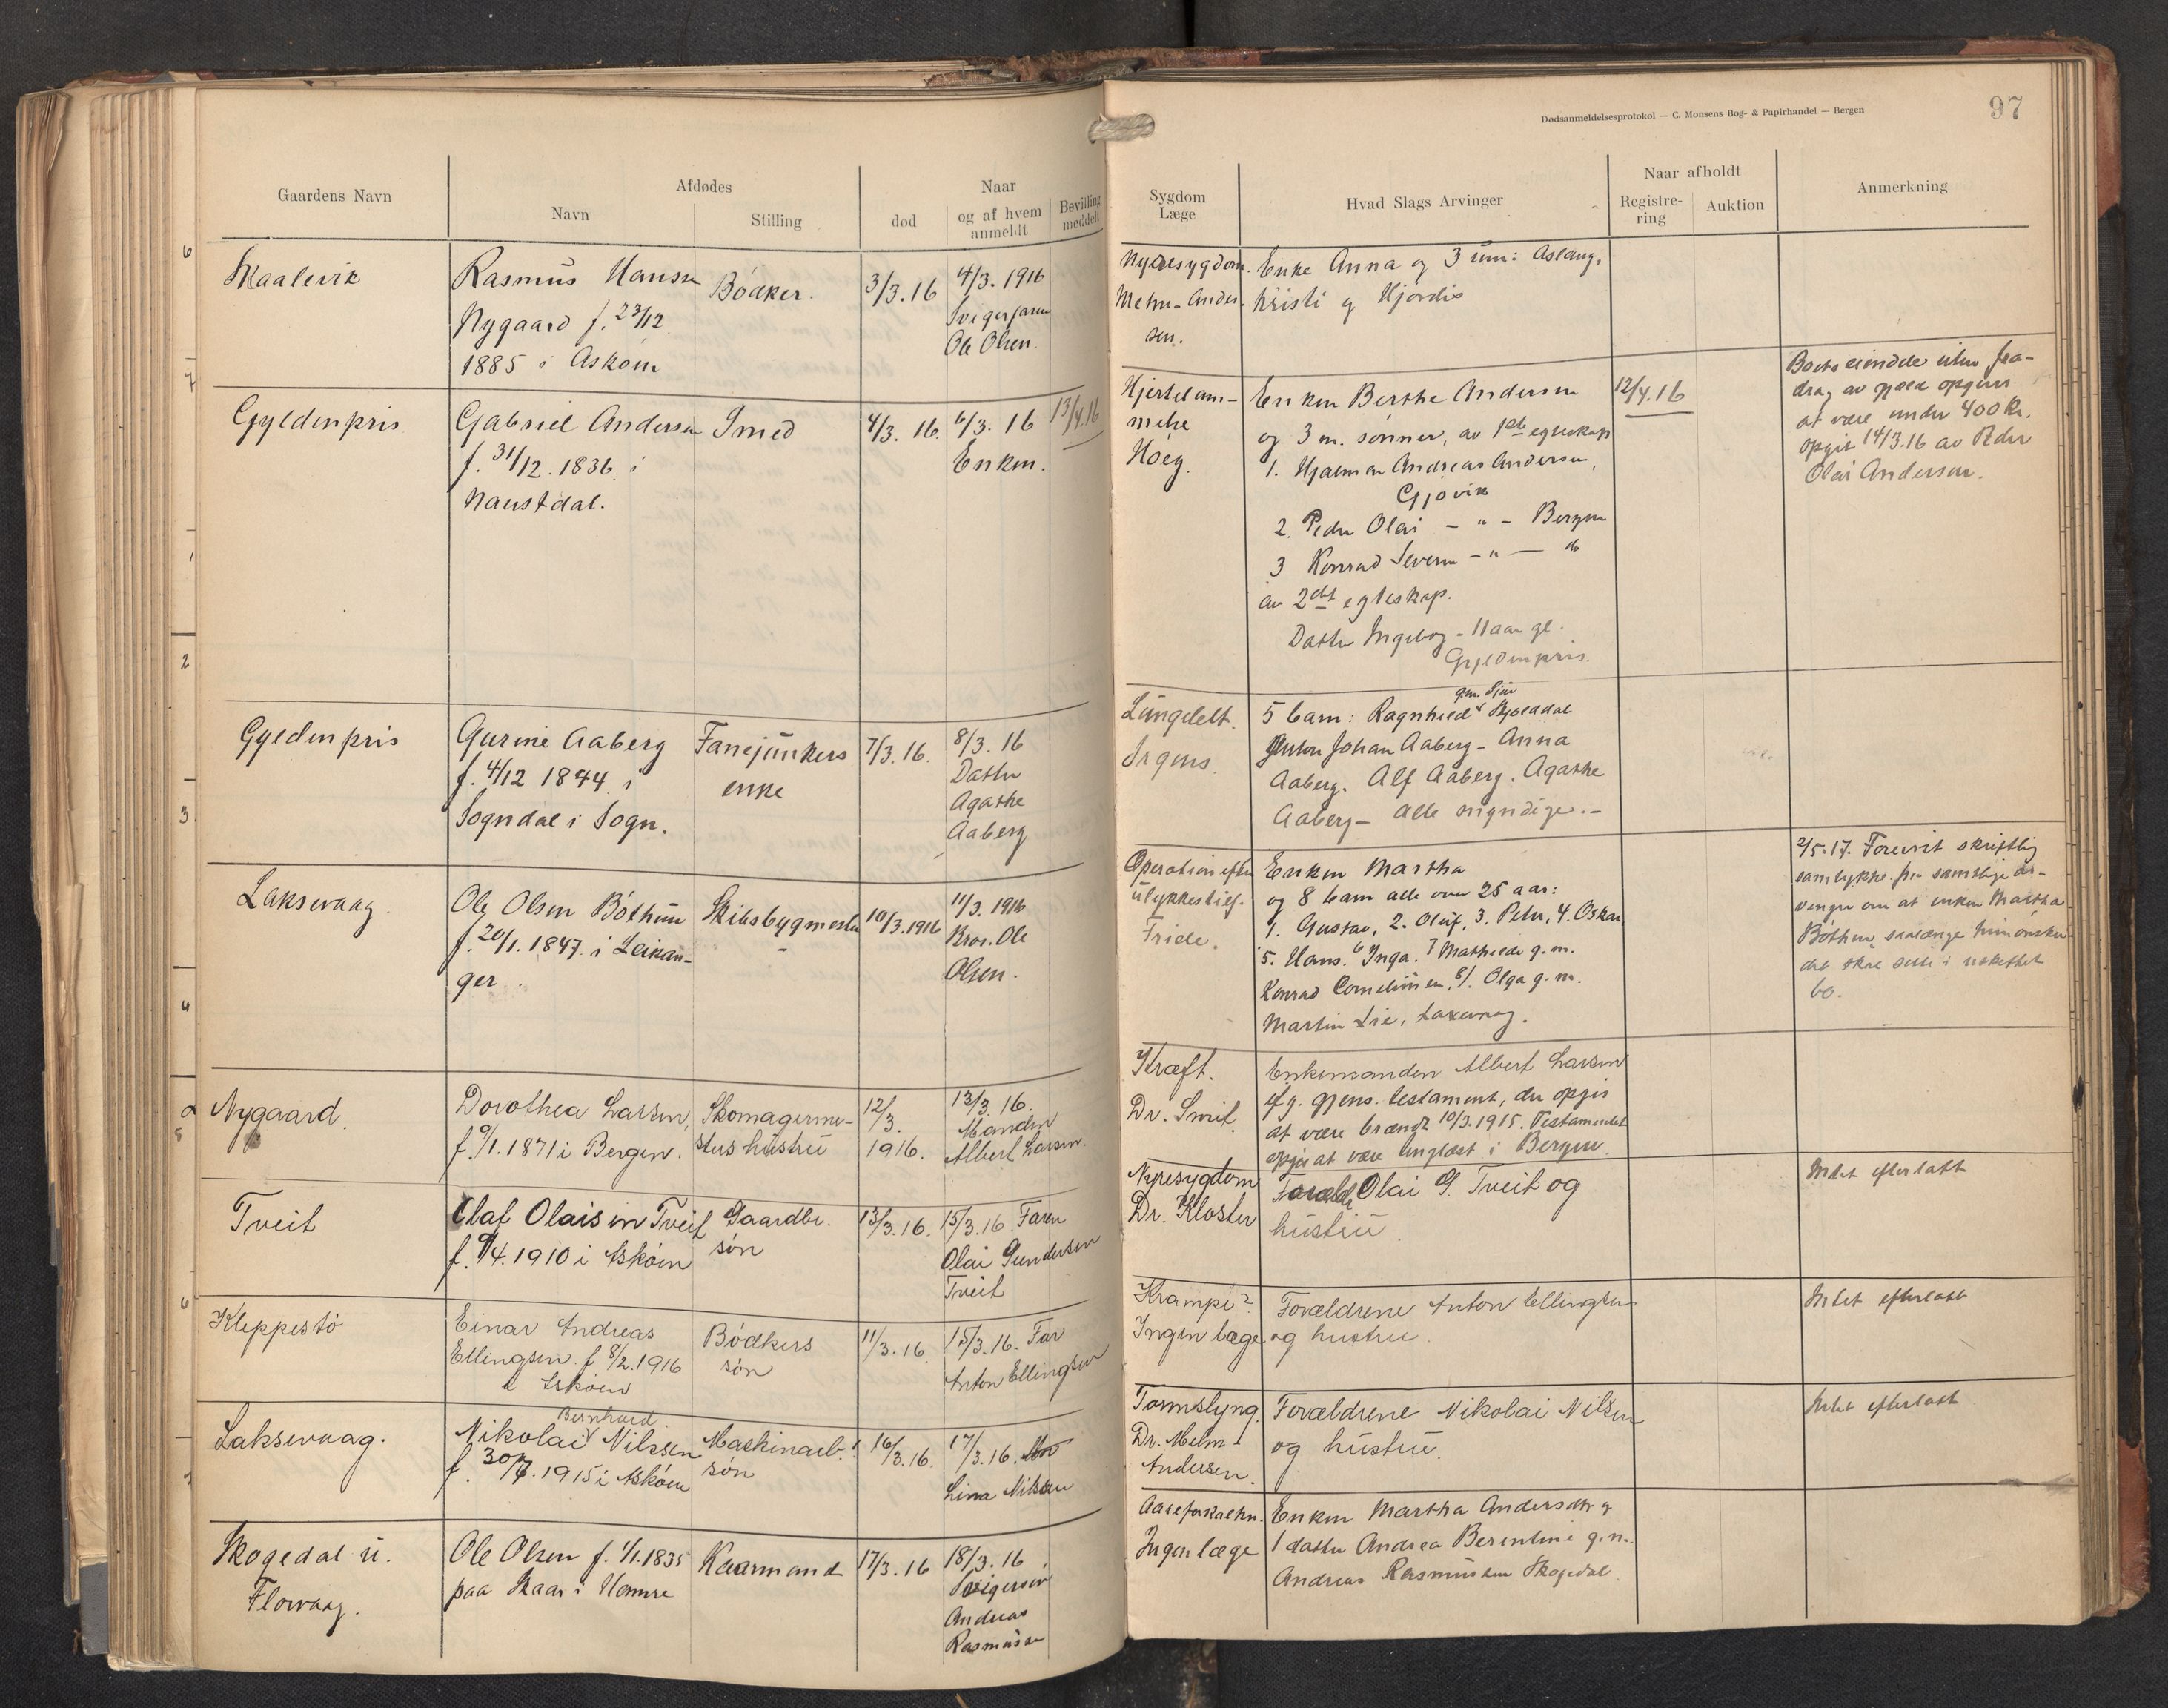 Dødsanmeldelsesprotokol — C. Monsens Bog- & Papirhandel — Bergen
97
Gaardens Navn
Afdødes
Navn
Stilling
død
Naar
og af hvem
anmeldt
Bevilling
meddelt
Sygdom
Læge
Hvad Slags Arvinger
Naar afholdt
Registre-
ring
Auktion
Anmerkning
Skaalevik
Rasmus Hansen
Nygaard f. 23/12
1885 i Askøin
Bødker.
3/3.16
4/3. 1916
Svigerfaren
Ole Olsen.
Nyresygdom.
Mehn-Ander-
sen.
Enke Anna og 3 um: Aslaug,
Kristi og Hjørdis
Gyldenpris
Gabriel Andersen
f. 31/12. 1836 i
Naustdal.
Smed
4/3. 16.
6/3. 16
Enken.
13/4.16
Hjertelam-
melse
Høeg.
Enken Berthe Andersen
og 3 m. sønner, av 1ste egteskap
1. Hjalmar Andreas Andersen,
Gjøvik
2. Peder Olai - " - Bergen
3 Konrad Severin - " - do
av 2det egteskap.
Datter Ingeborg - 11 aar gl.
Gyldenpris.
12/4.16
Boets eiendele uten fra-
drag av gjæld opgives
at være under 400 Kr.
opgit 14/3.16 av Peder
Olai Andersen.
Gyldenpris
Gurine Aaberg
f. 4/12 1844 i
Sogndal i Sogn.
Fanejunkers
enke
7/3. 16.
8/3. 16
Datter
Agathe
Aaberg
Lungebet.
Irgens.
5 barn: Ragnhild g.m. Sjur Skjelddal
Anton Johan Aaberg - Anna
Aaberg. Alf Aaberg. Agathe
Aaberg - alle myndige. -
Laksevaag.
Ole Olsen Bøthun
f. 20/1. 1847. i Leikan-
ger.
Skibsbygmester
10/3.1916
11/3. 1916
Bror. Ole
Olsen.
Operation efter
ulykkestilf.
Fride.
Enken Martha
og 8 barn alle over 25 aar:
1. Gustav, 2. Oluf, 3. Peter, 4. Oskar
5. Hans. 6 Inga. 7 Mathilde g.m.
Konrad Corneliussen, 8/. Olga g.m.
Martin Lie, Laxevaag.
2/5.17. Forevist skriftlig
samtykke fra samtlige ar-
vinger om at enken Martha
Bøthun, saalænge hun ønsker
det skal sitte i uskiftet
bo.
Nygaard.
Dorothea Larsen,
f. 9/1. 1871 i Bergen.
Skomagerme-
sters hustru
12/
/3.
1916.
13/3. 16.
Manden
Albert Larsen.
Kræft.
Dr. Smit.
Enkemanden Albert Larsen
efg. gjens. testament, der opgis
at være brændt 10/3.1915. Testamentet
opgis at være tinglæst i Bergen.
Tveit
Olaf Olaisen Tveit
f. 9/4. 1910 i Askøin
Gaardbr.
søn
13/3. 16.
15/3. 16. Faren
Olai Gundersen
Tveit
Nyresygdom
Dr. Kloster
Forældr. Olai G. Tveit og
hustru.
Intet efterlatt
Kleppestø
Einar Andreas
Ellingsen. f 8/2. 1916
i Askøin
Bødkers
søn
11/3. 16.
15/3. 16. Far
Anton Ellingsen
Krampe?
Ingen læge
Forældrene Anton Ellingsen
og hustru.
Intet efterlatt
Laksevaag.
Bernhard
Nikolai Nilssen
f. 30/7. 1915 i Askøin
Maskinarb.
søn
16/3. 16.
17/3. 16.
Lina Nilssen
Tarmslyng.
Dr. Mehn-
Andersen.
Forældrene Nikolai Nilsen
og hustru.
Intet efterlatt
Skogedal u.
Florvaag.
Ole Olsen f. 1/1. 1835
paa Skaar i Hamre
Kaarmand
17/3. 16
18/3. 16
Svigersøn
Andreas
Rasmussen
Aareforkalkn.
Ingen læge
Enken Martha Andersdtr og
1 datter Andrea Berentine g.m.
Andreas Rasmussen Skogedal.